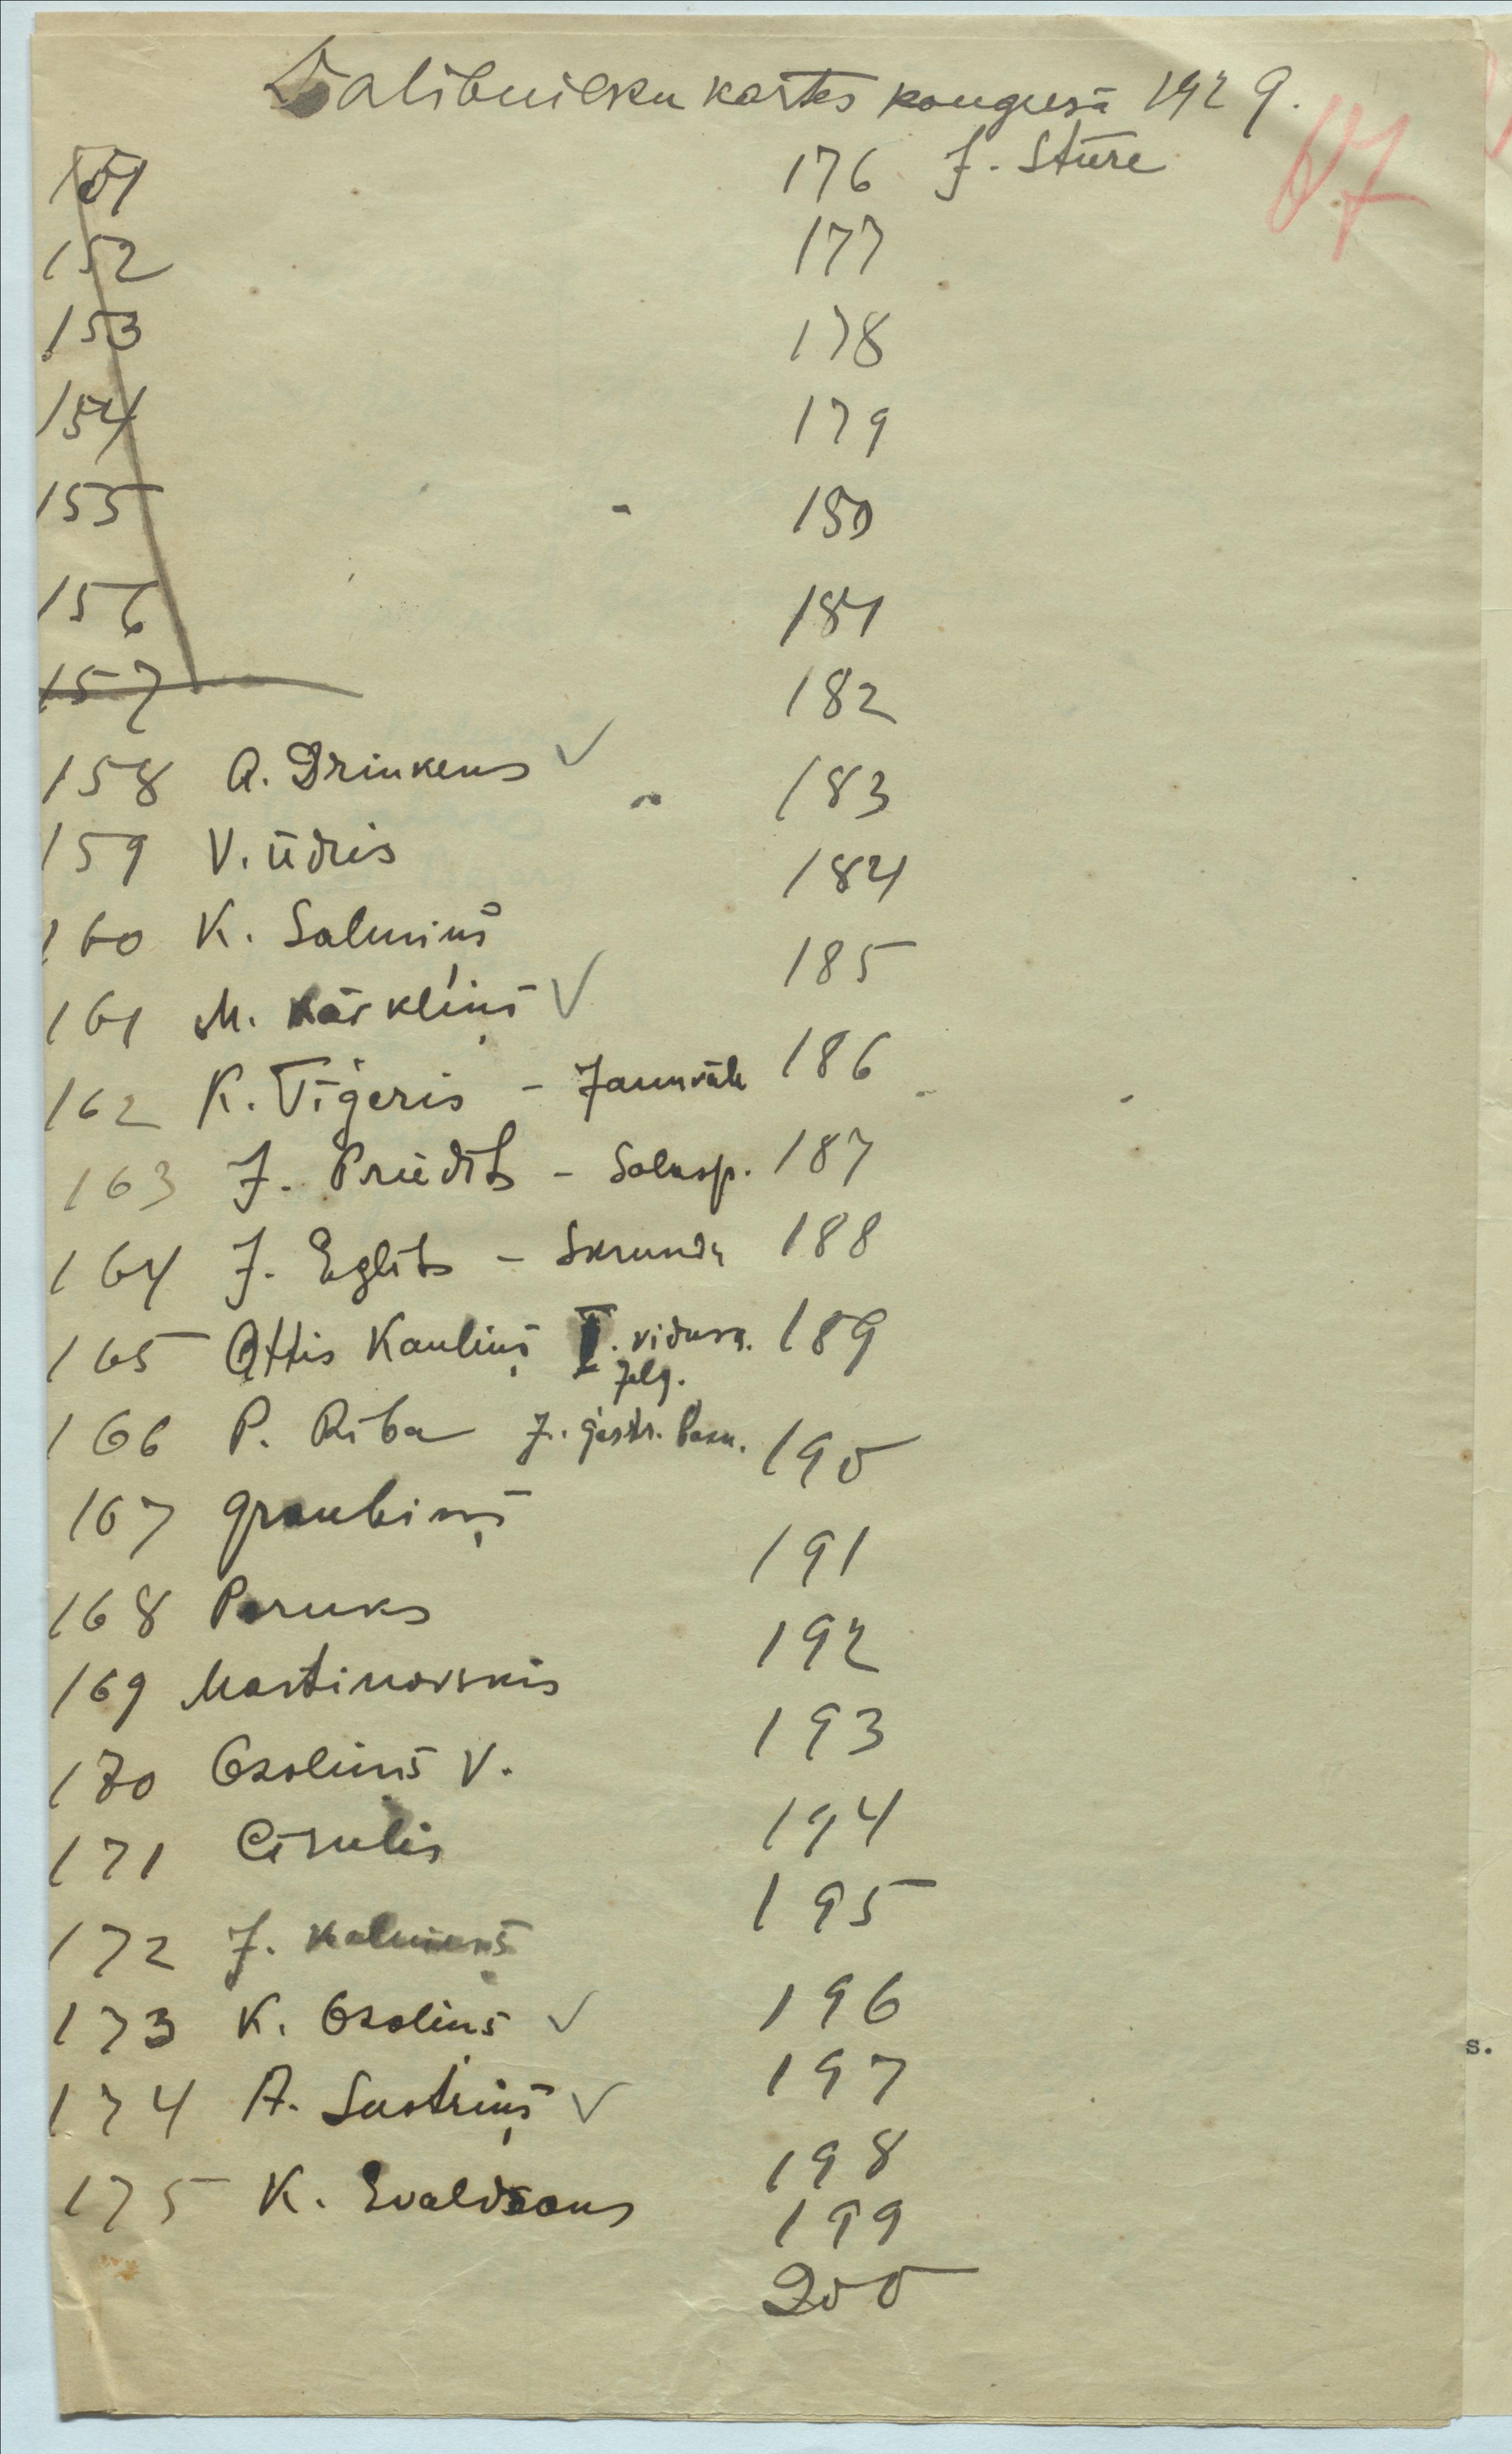 Dalibnieku kartes kongresā 1929.
67
151
152
153
154
155
156
157
158 A. Drinkens ✓
159 V. Ūdris
160 K. Salmiņš
161 M. Kārkliņš ✓
162 K. Tīģeris - Jaunrāte
163 J. Priedīts - Salasp.
164 J. Eglīts - Skrunda
165 Attis Kauliņš I. vidussk.
Jelg.
166 P. Rība J. ģestr.
167 Graubiņš
168 Paruks
169 Martinovskis
170 Ozoliņš V.
171 Cīrulis
172 J. Kalniņš
173 K. Ozoliņš ✓
174 A. Sastriņš ✓
175 K. Evaldsons
176 J. Stūre
177
178
179
180
181
182
183
184
185
186
187
188
189
190
191
192
193
194
195
196
197
198
199
200
s.